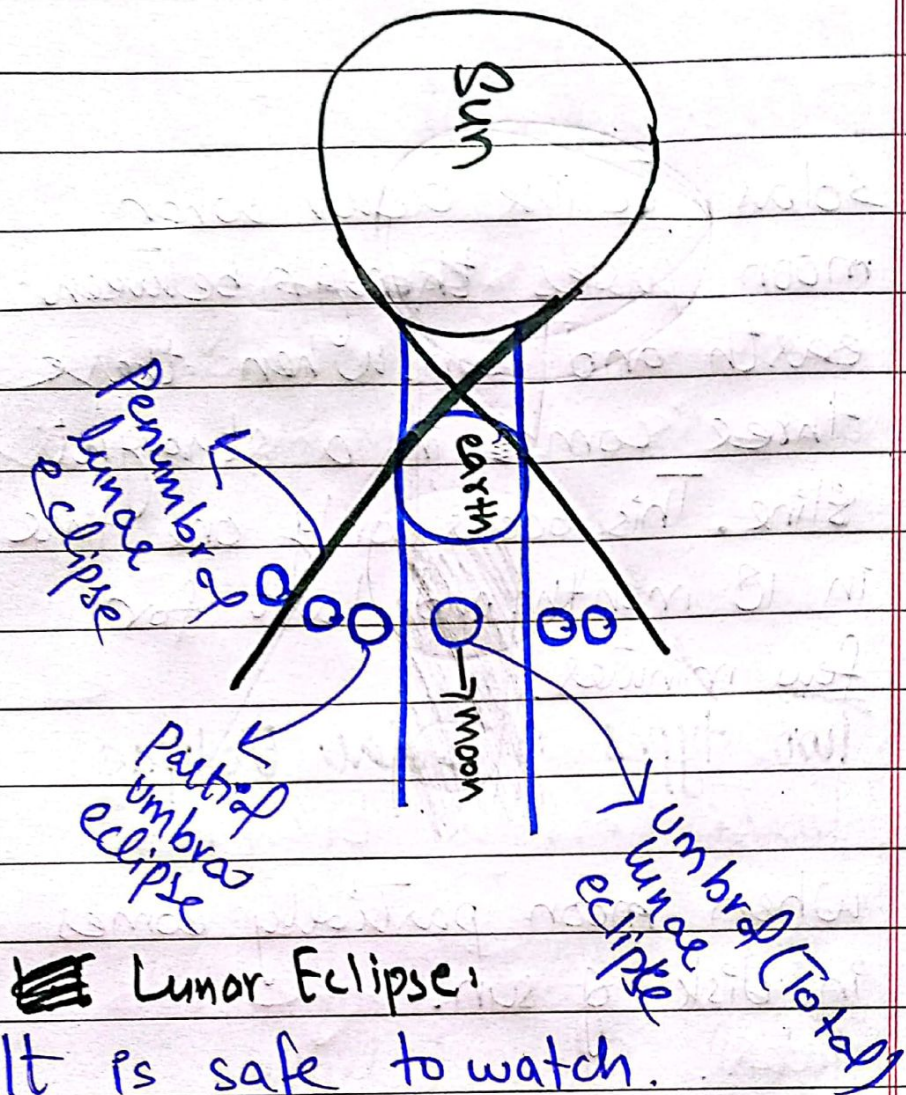 Sun
earth
Penumbral
lunar
eclipse
moon
Partial
umbra
eclipse
umbral (Total)
lunar
eclipse
Lunar Eclipse:
It is safe to watch.